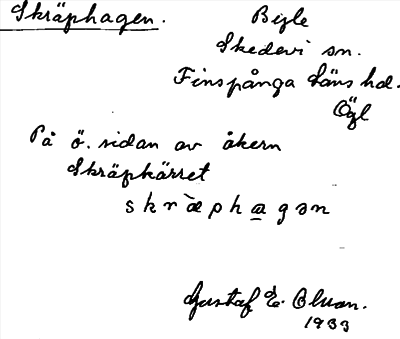 Skräphagen.
Bigle
Skedevi sn.
Finspånga läns hd.
Ögl
På ö. sidan av åkern
Skräpkärret
skrὰphagən
Gustaf E. Olson.
1933